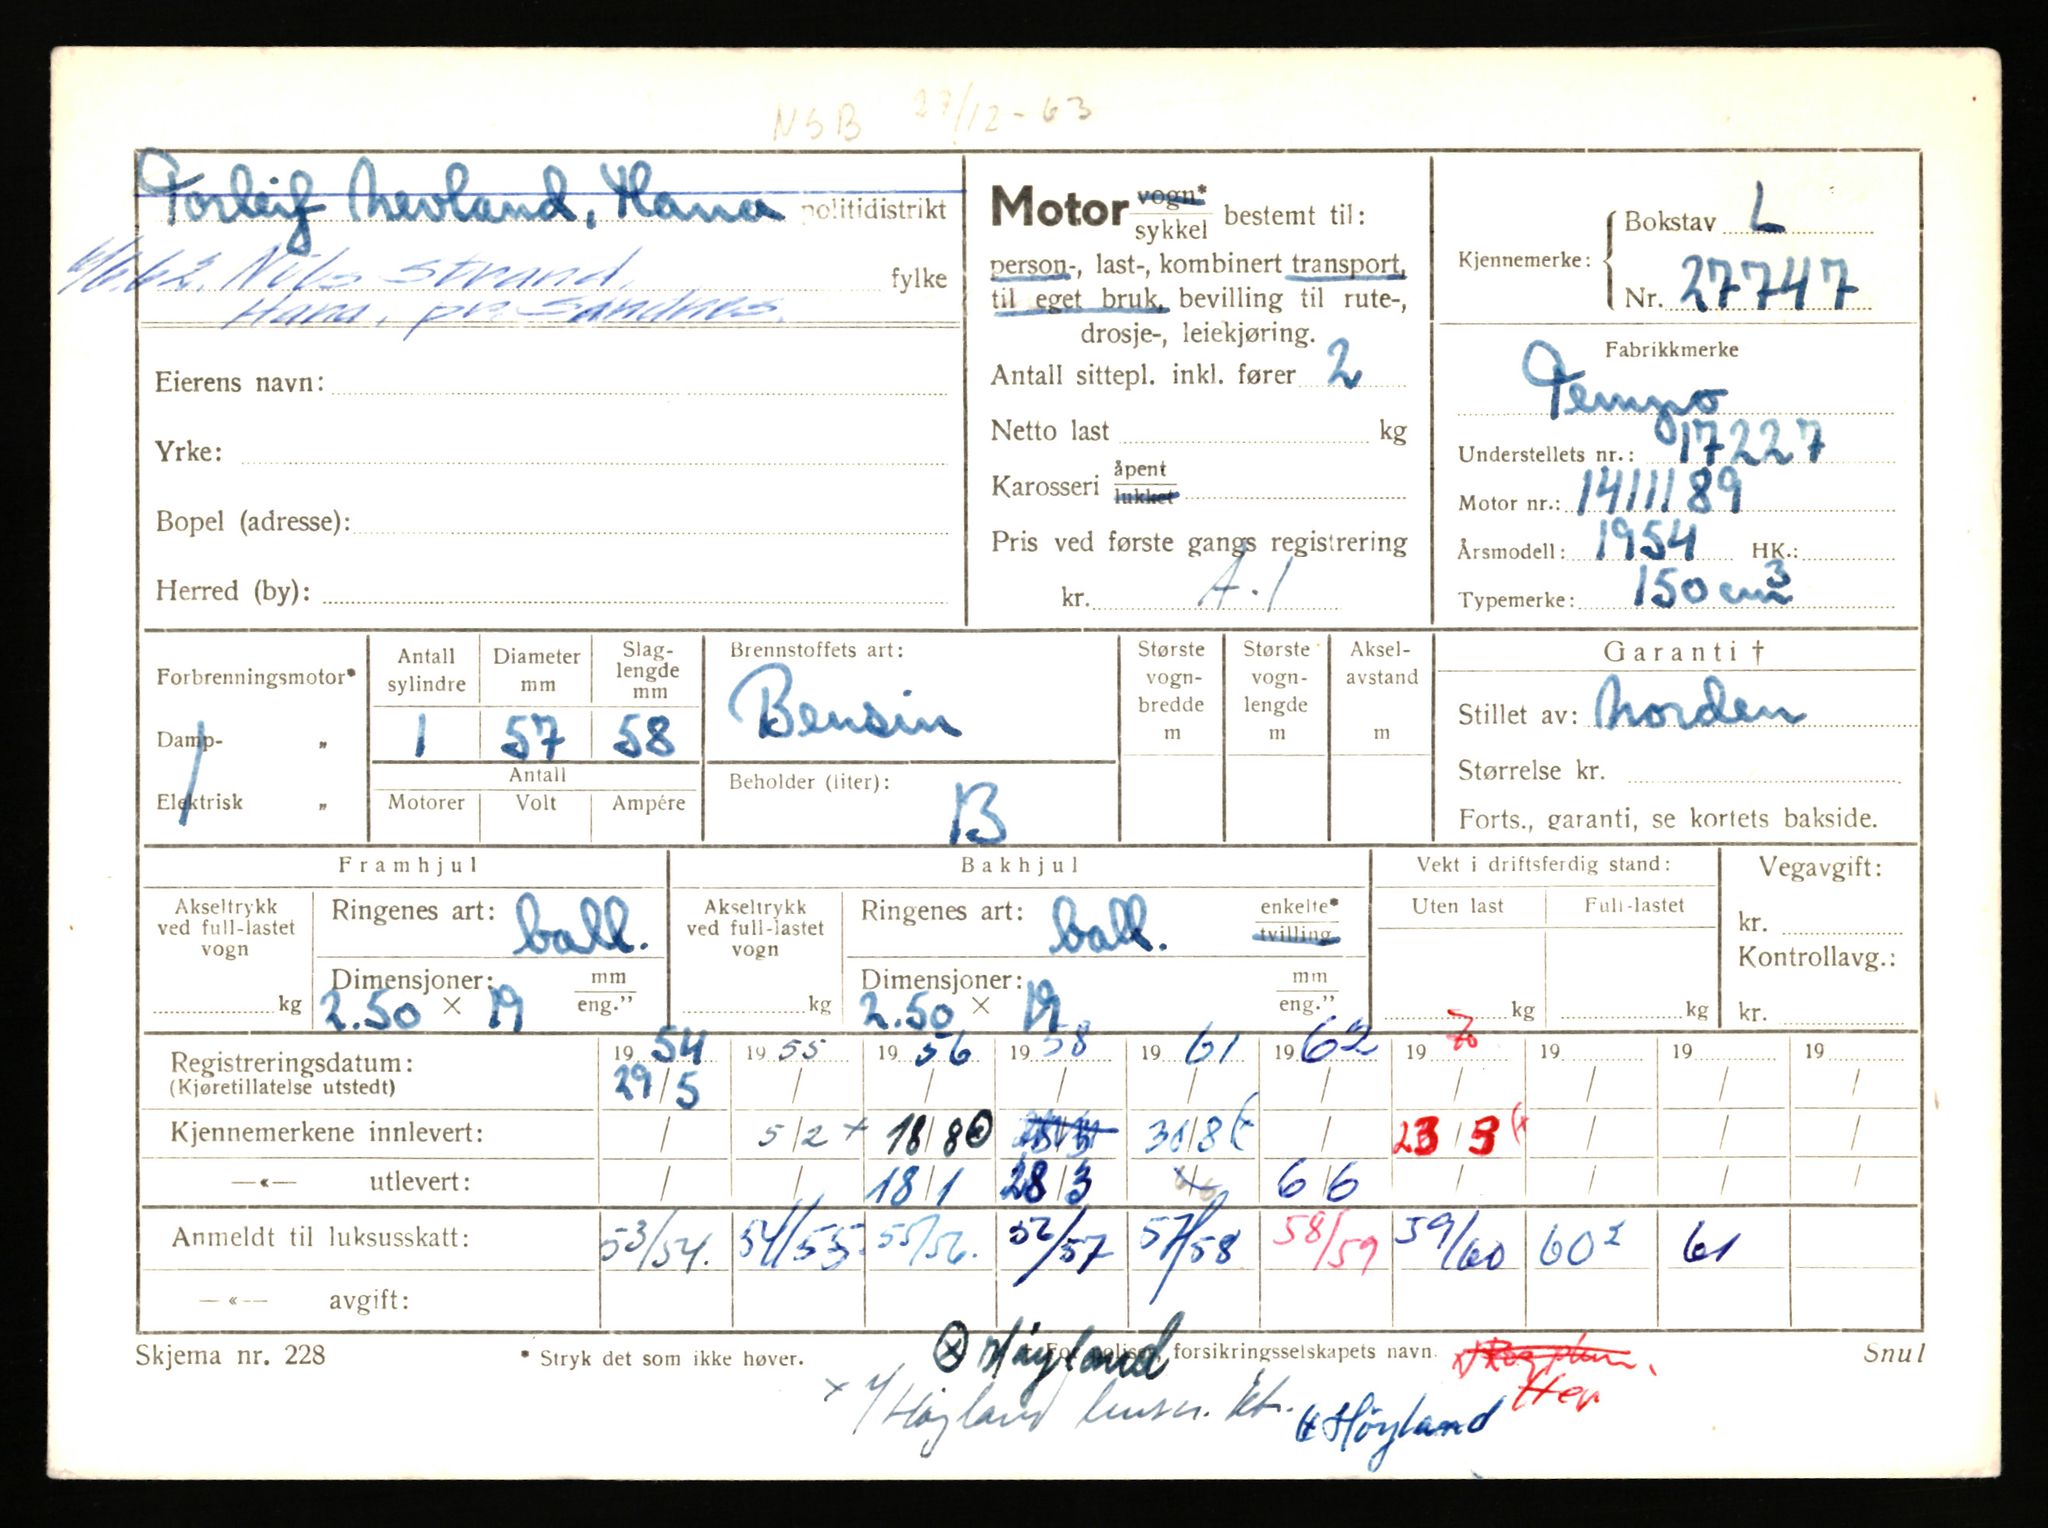 NSB 27/12-63
Torleif Nevland, Hana politidistrikt
6/6.62. Nils Strand, fylke
Hana, pr. Sandnes.
Eierens navn:
Yrke:
Bopel (adresse):
Herred (by):
Motor vogn* / sykkel bestemt til:
person-, last-, kombinert transport,
til eget bruk, bevilling til rute-,
drosje-, leiekjøring.
Antall sittepl. inkl. fører 2
Netto last kg
Karosseri åpent / lukket
Pris ved første gangs registrering
kr. A.1
Kjennemerke: Bokstav L
Nr. 27747
Fabrikkmerke
Tempo
Understellets nr.: 17227
Motor nr.: 1411189
Årsmodell: 1954 HK.:
Typemerke: 150 cm3
Forbrenningsmotor*
Damp- „
Elektrisk „
Antall sylindre 1
Diameter mm 57
Slag-lengde mm 58
Antall
Motorer Volt Ampére
Brennstoffets art:
Bensin
Beholder (liter):
B
Største vogn-bredde m
Største vogn-lengde m
Aksel-avstand m
Garanti †
Stillet av: Norden
Størrelse kr.
Forts., garanti, se kortets bakside.
Framhjul
Akseltrykk ved full-lastet vogn kg
Ringenes art: ball.
Dimensjoner: mm / eng.”
2.50 × 19
Bakhjul
Akseltrykk ved full-lastet vogn kg
Ringenes art: ball. enkelte* / tvilling
Dimensjoner: mm / eng.”
2.50 × 19
Vekt i driftsferdig stand:
Uten last Full-lastet
kg kg
Vegavgift:
kr.
Kontrollavg.:
kr.
Registreringsdatum: 19 54 19 55 19 56 19 58 19 61 19 62 19 70 19 19 19
(Kjøretillatelse utstedt) 29/5 / / / / / / / / /
Kjennemerkene innlevert: / 5/2 + 18/8 ⊗ 30/8 / 23/3 / / /
—«— utlevert: / / 18/1 28/3 6/6 / / / /
Anmeldt til luksusskatt: 53/54. 54/55. 55/56. 56/57 57/58 58/59 59/60 60² 61
—«— avgift:
Skjema nr. 228 * Stryk det som ikke høver. † For polise, forsikringsselskapets navn. Snul
⊗ Høyland
× Høyland lensm. ktr.
Høyland